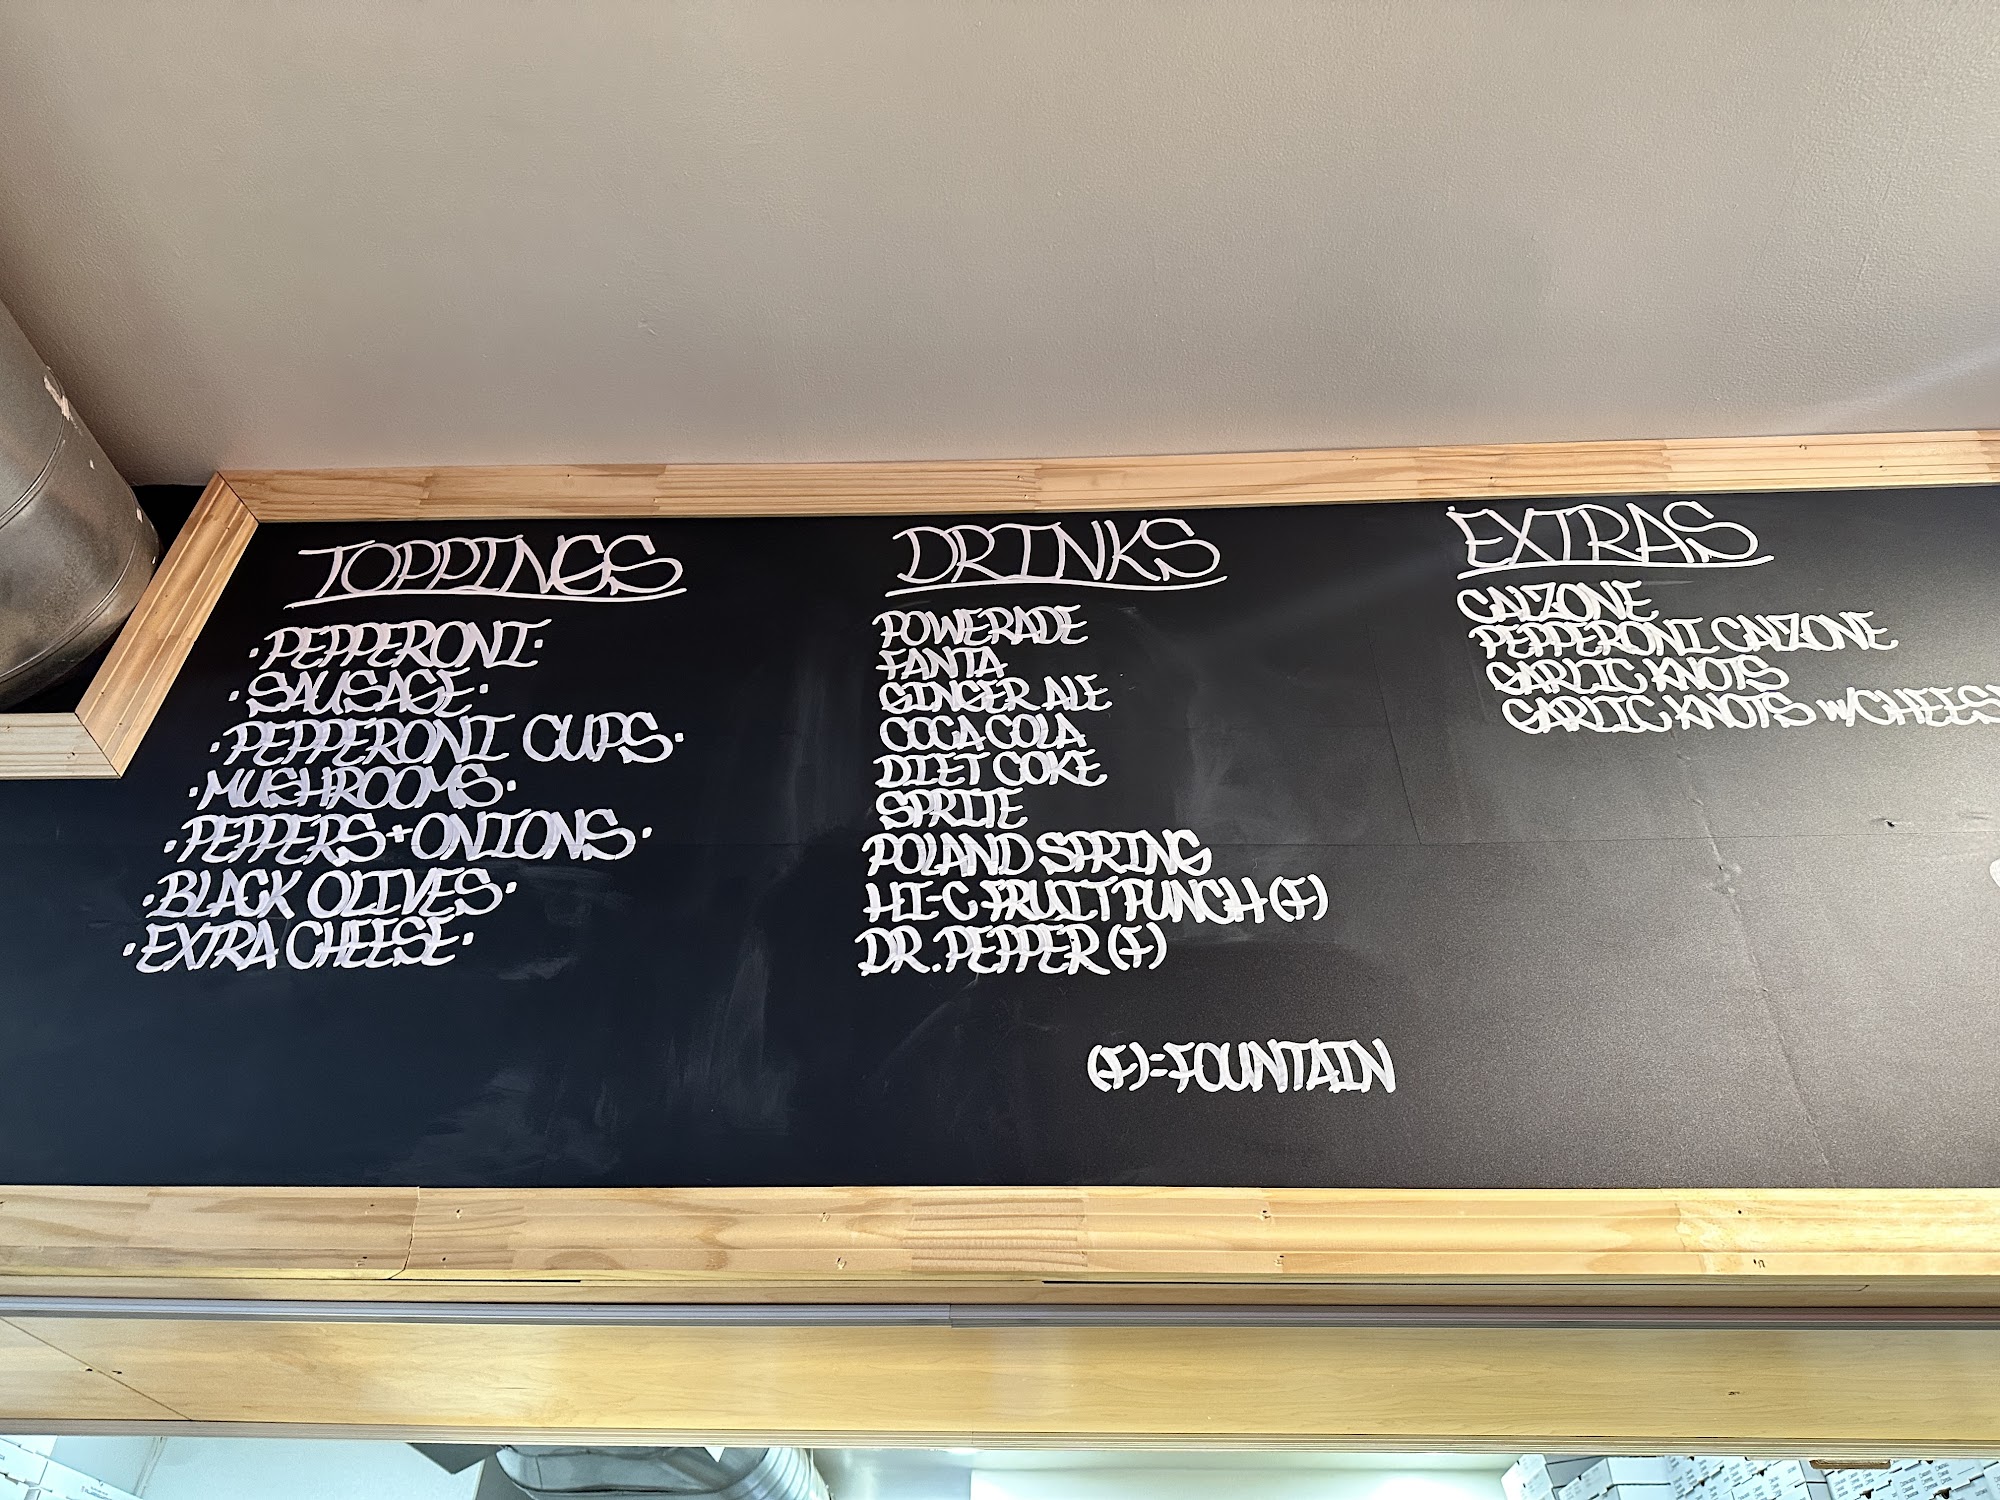 TOPPINGS
·PEPPERONI·
·SAUSAGE·
·PEPPERONI CUPS·
·MUSHROOMS·
·PEPPERS+ONIONS·
·BLACK OLIVES·
·EXTRA CHEESE·
DRINKS
POWERADE
FANTA
GINGER ALE
COCA COLA
DIET COKE
SPRITE
POLAND SPRING
HI-C FRUIT PUNCH (F)
DR. PEPPER (F)
(F)=FOUNTAIN
EXTRAS
CALZONE
PEPPERONI CALZONE
GARLIC KNOTS
GARLIC KNOTS W/CHEES